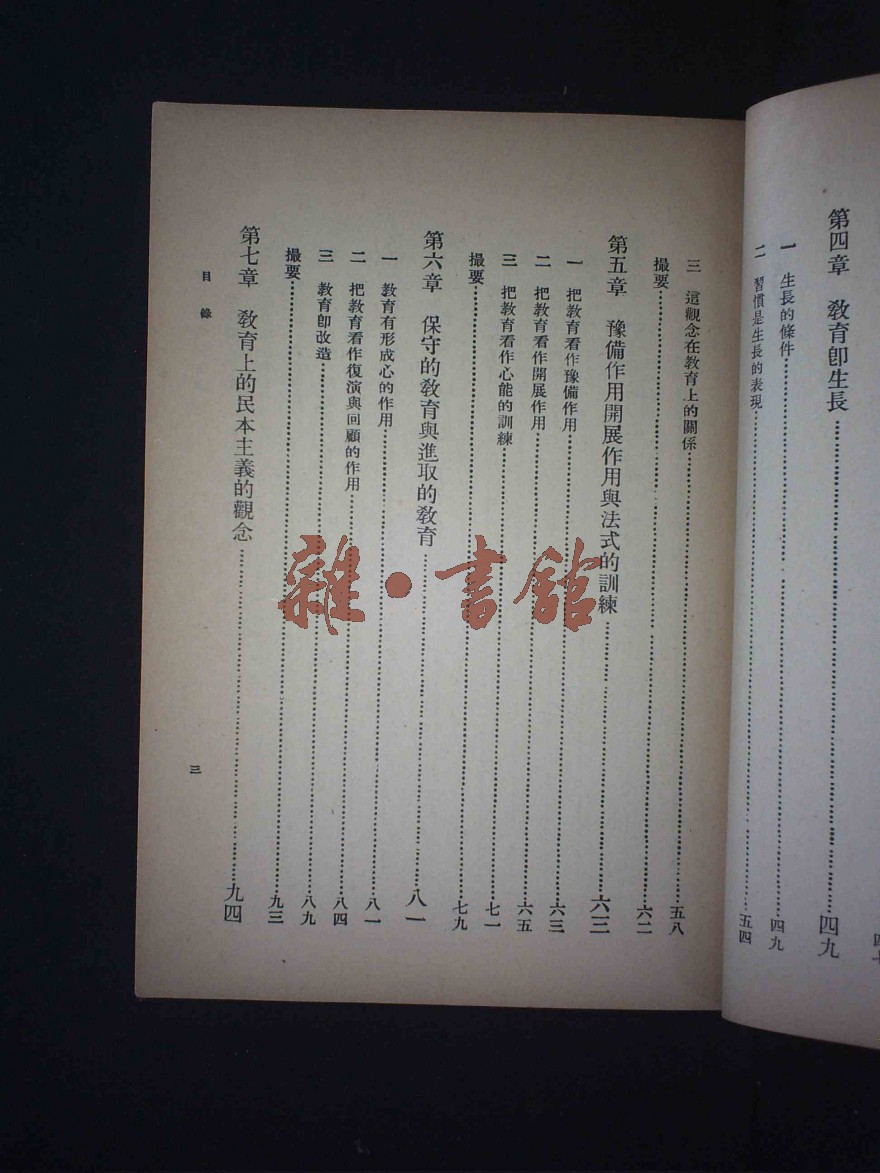 第四章　敎育卽生長……四九
一　生長的條件……四九
二　習慣是生長的表現……五四
三　這觀念在敎育上的關係……五八
撮要……六二
第五章　豫備作用開展作用與法式的訓練……六三
一　把敎育看作豫備作用……六三
二　把敎育看作開展作用……六五
三　把敎育看作心能的訓練……七一
撮要……七九
第六章　保守的敎育與進取的敎育……八一
一　敎育有形成心的作用……八一
二　把敎育看作復演與回顧的作用……八四
三　敎育卽改造……八九
撮要……九三
第七章　敎育上的民本主義的觀念……九四
目錄
三
雜·書館